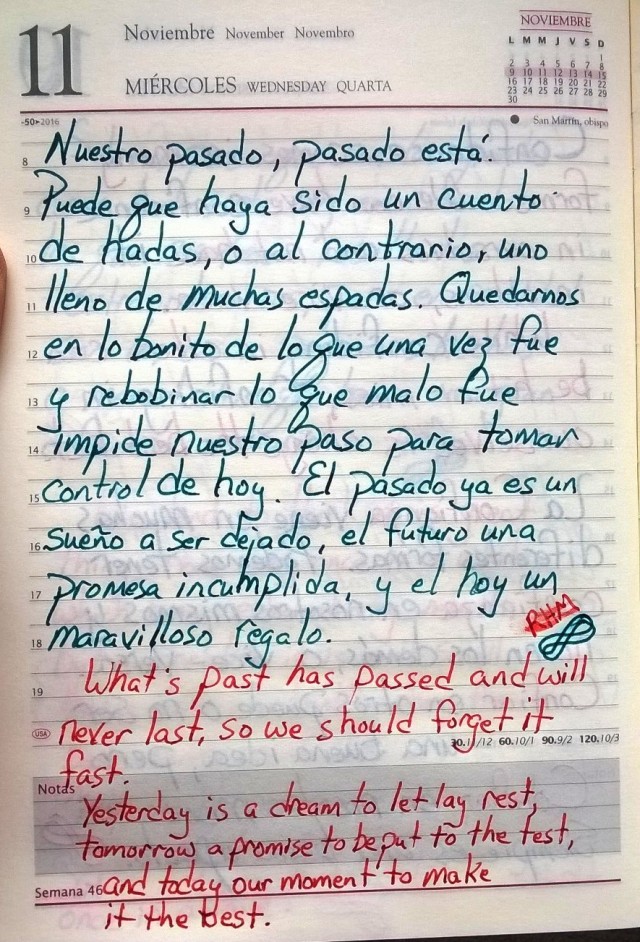 11
Noviembre November Novembro
MIÉRCOLES WEDNESDAY QUARTA
NOVIEMBRE
L M M J V S D
1
2 3 4 5 6 7 8
9 10 11 12 13 14 15
16 17 18 19 20 21 22
23 24 25 26 27 28 29
30
-50▸2016
San Martín, obispo
8 Nuestro pasado, pasado está.
9 Puede que haya sido un cuento
10 de hadas, o al contrario, uno
11 lleno de muchas espadas. Quedarnos
12 en lo bonito de lo que una vez fue
13 y rebobinar lo que malo fue
14 impide nuestro paso para tomar
15 control de hoy. El pasado ya es un
16 sueño a ser dejado, el futuro una
17 promesa incumplida, y el hoy un
18 maravilloso regalo.
RHM
19 What's past has passed and will
USA never last, so we should forget it
30.11/12 60.10/1 90.9/2 120.10/3
fast.
Notas
Yesterday is a dream to let lay rest,
tomorrow a promise to be put to the test,
Semana 46 and today our moment to make
it the best.